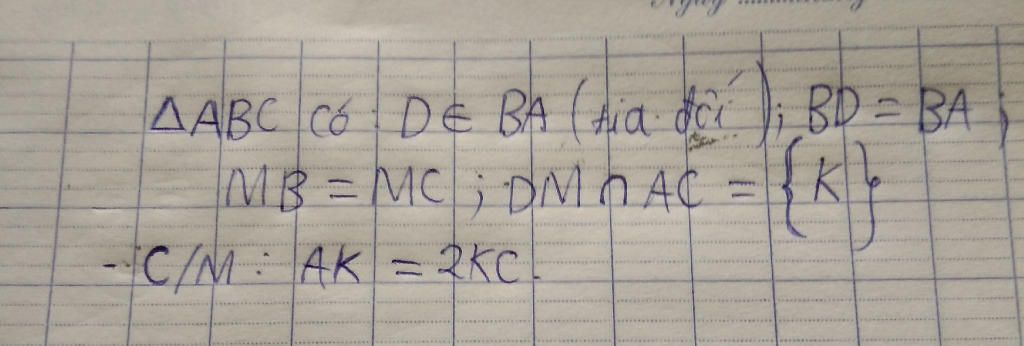 ΔABC có : D ∈ BA (tia đối); BD = BA ;
MB = MC ; DM ∩ AC = {K}
- C/M : AK = 2KC.